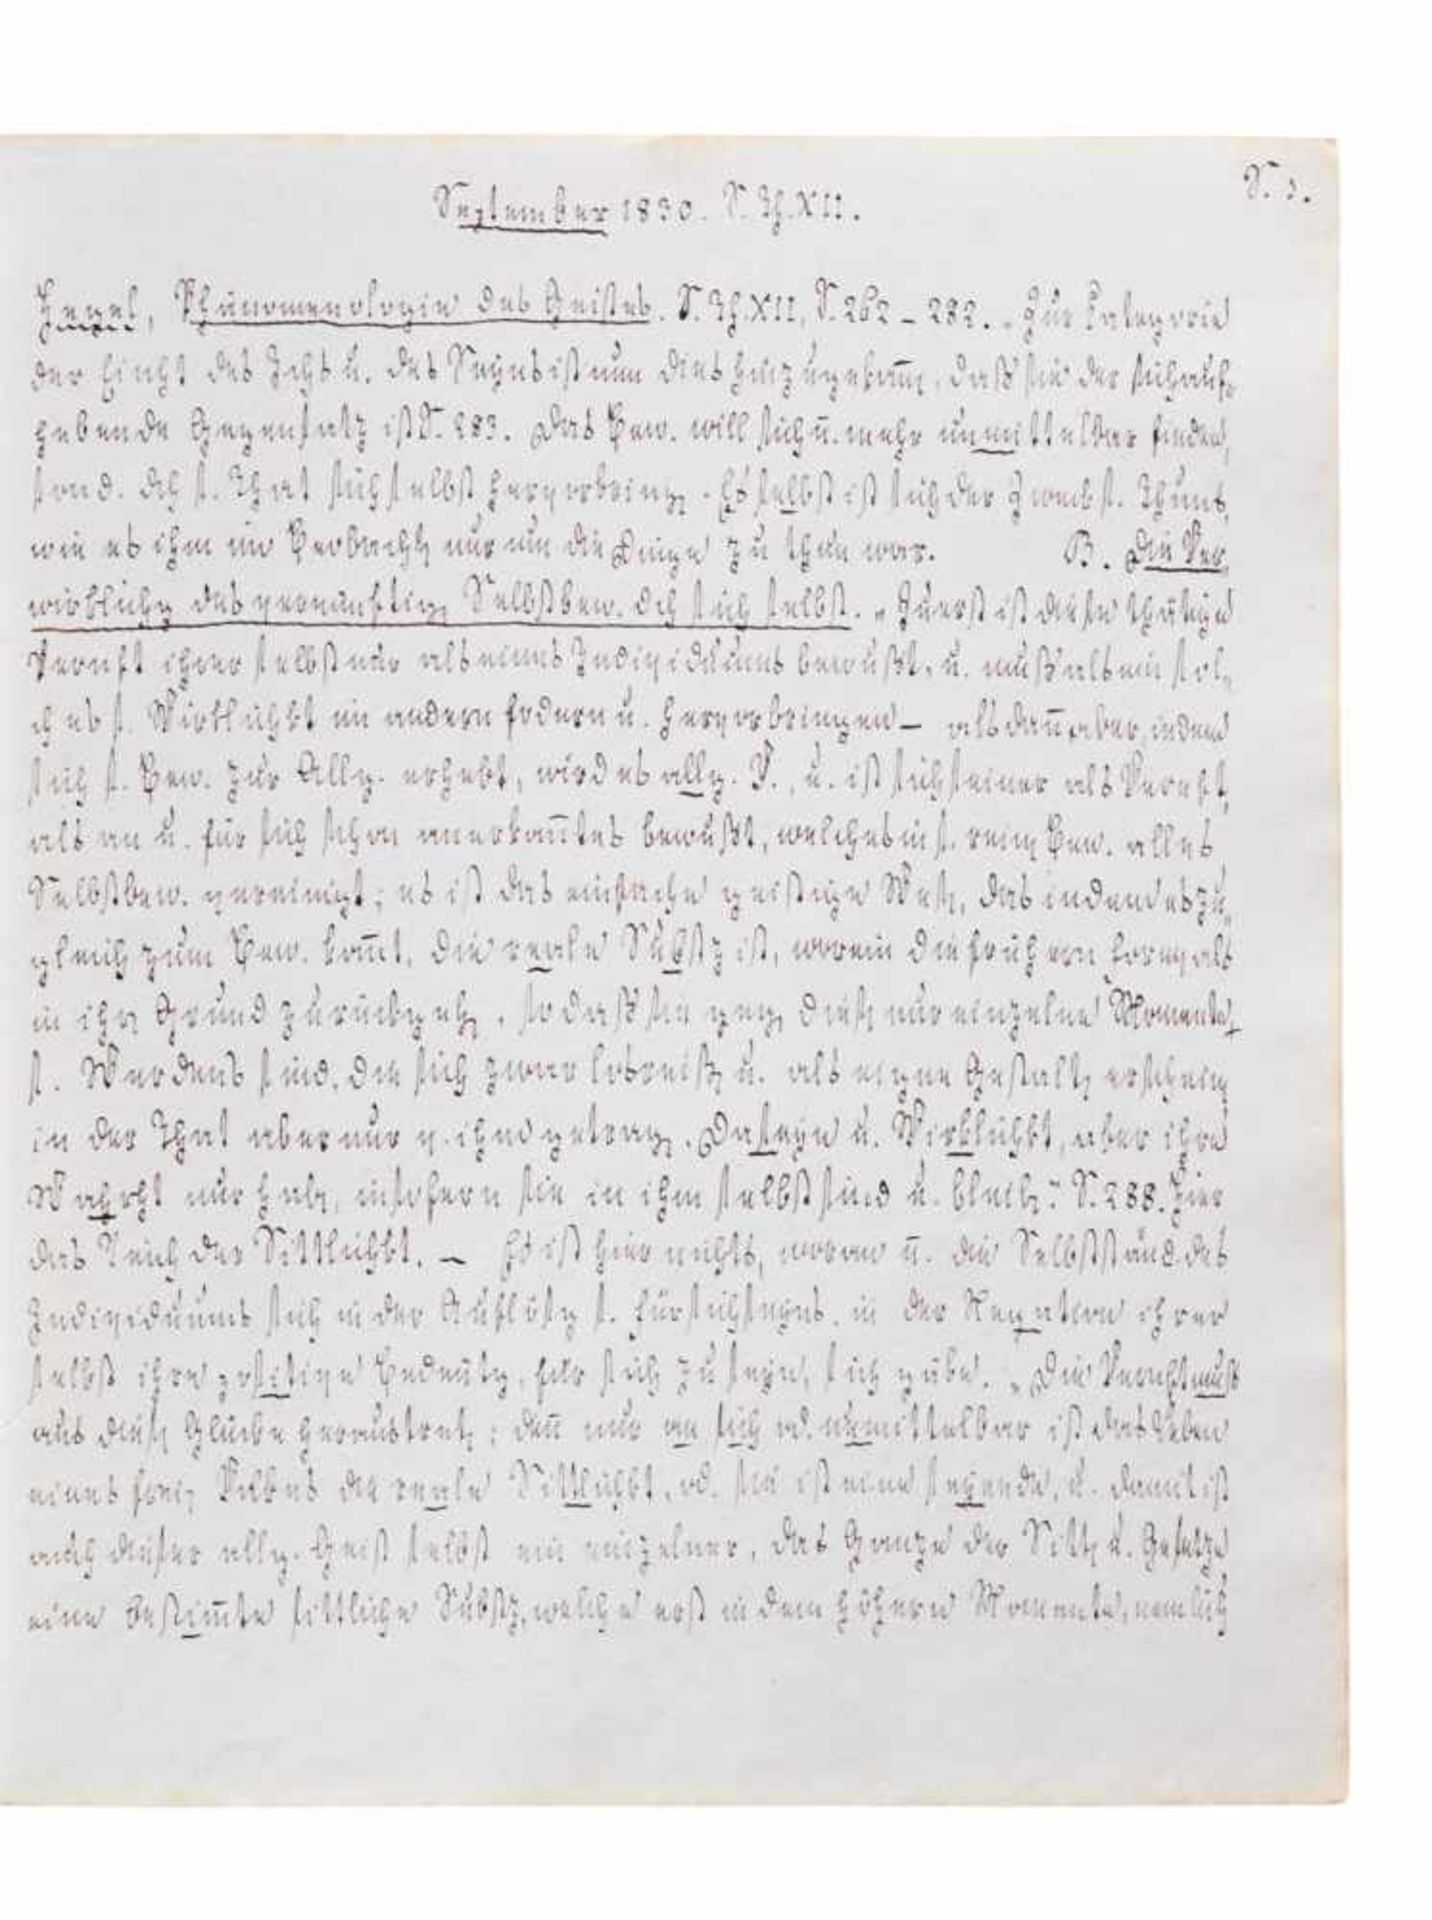 S. 3.
September 1830. S. Th. XII.
Hegel, Phänomenologie des Geistes. S. Th. XII, S. 262 – 282. „Zur Kategorie
der Einht des Ichs u. des Seyns ist nun dies hinzugekam̅, daß sie der sichauf„
hebende Gegensatz ist S. 283. Das Bew. will sich n̅. mehr unmittelbar finden,
sond. dch s. That sich selbst hervorbring. Es selbst ist sich der Zweck s. Thuns,
wie es ihm im Beobacht nur um die Dinge zu thun war. B. Die Ver„
wirklichg des vernünftig Selbstbew. dch sich selbst. „Zuerst ist diese thätige
Vernft ihrer selbst nur als eines Individuums bewußt, u. muß als ein sol„
ches s. Wirklichkt im andern fodern u. hervorbringen – alsdan̅ aber, indem
sich s. Bew. zur Allg. erhebt, wird es allg. V., u. ist sich seiner als Vernft,
als an u. für sich schon anerkan̅tes bewußt, welches in s. rein Bew. alles
Selbstbew. vereinigt; es ist das einfache geistige Wes, das indem es zu„
gleich zum Bew. kom̅t, die reale Substz ist, worein die frühern Formen als
in ihrn Grund zurückgeh, so daß sie geg dies nur einzelne Momente
s. Werdens sind, die sich zwar losreiß u. als eigne Gestalt erschein
in der That aber nur v. ihm getrag, Daseyn u. Wirklichkt, aber ihre
Wahrht nur hab, insofern sie in ihm selbst sind u. bleib." S. 288. Hier
das Reich der Sittlichkt. – Es ist hier nichts, woran n̅. die Selbstständ. des
Individuums sich in der Auflösg s. Fürsichseyns, in der Negation ihrer
selbst ihre positive Bedeutg, für sich zu seyn, sich gäbe. „Die Vernft muß
aus dies Glücke heraustret; den̅ nur an sich od. unmittelbar ist das Leben
eines frei Volkes die reale Sittlichkt, od. sie ist eine seyende, u. damit ist
auch dieser allg. Geist selbst ein einzelner, das Ganze der Sitt u. Gesetze
eine bestim̅te sittliche Substz, welche erst in dem höhern Momente, nemlich